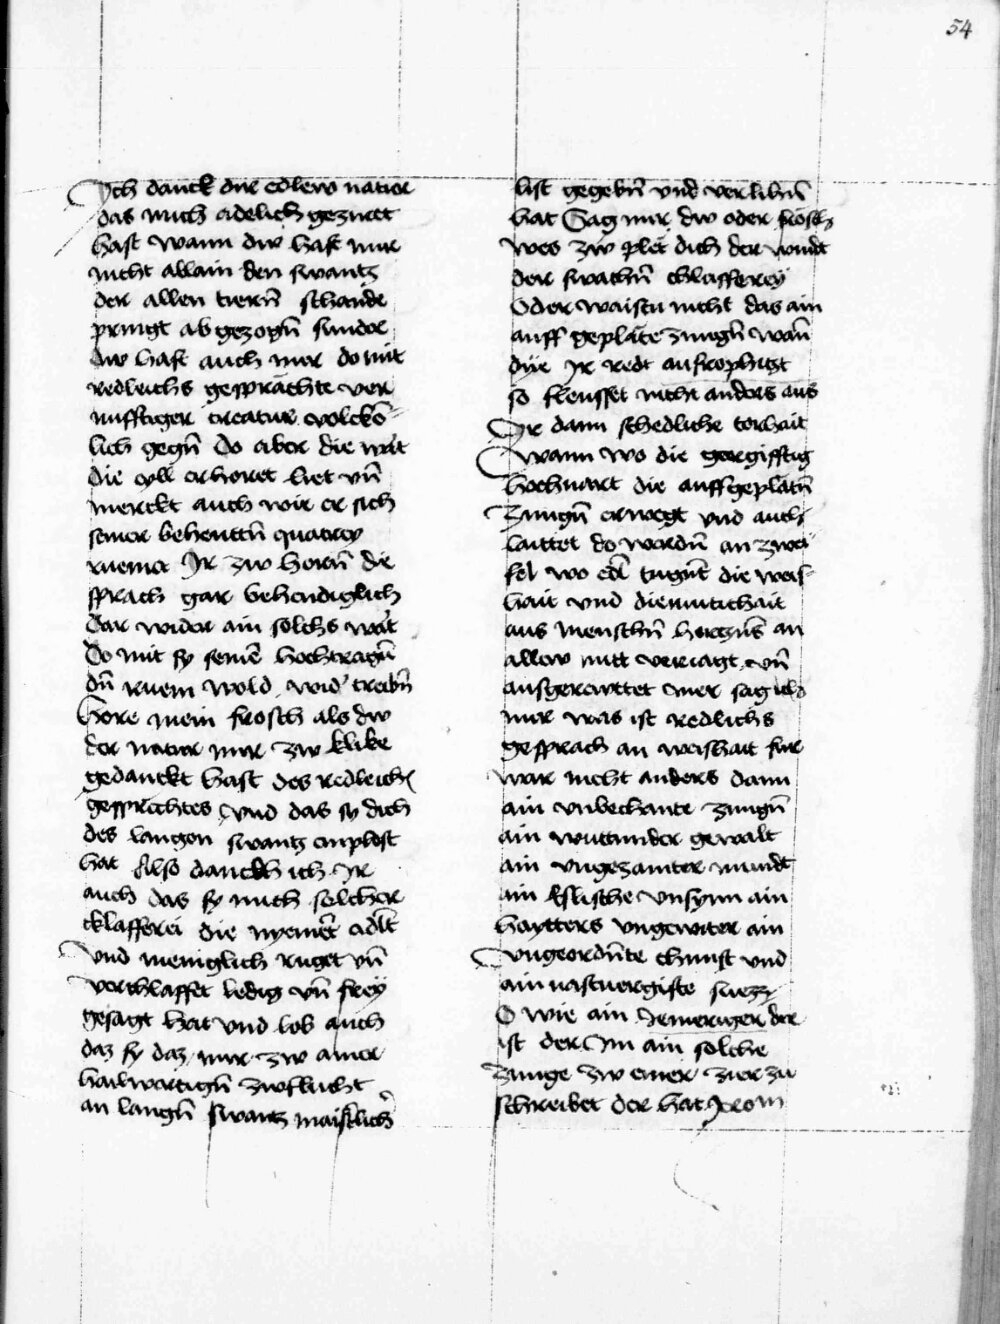 54
Ich danck dir edlew natur
das mich adelich geziret
hast wann dw hast mir
nicht allain den swantz
der allen tiern̄ schande
pringt ab gezogn̄ sunder
dw hast auch mir do mit
redleichs gesprächte ver
nufftiger creatur volckō
lich gegn̄ Do aber die wāt
die eyll erhoret liet vn̄
merckt auch wie er sich
seiner behenttn̄
ruemet Ir zw horn̄ die
sprach gar behendiglich
Dar wider ain solchs wāt
Do mit sy seinē hochtragn̄
dn̄ ruem wold wid' treibn̄
Hore mein frosch als dw
der natur mir zw
gedanckt hast des redleich
gesprechtes vnd das sy dich
des langen swantz emplost
hat Also danckh ich Ir
auch das sy mich solcher
cklafferei die nyemēt adlt
vnd meniglich ruget vn̄
verchlaffet ledig vn̄ frey
gesagt hat vnd lob auch
daz sy daz mir zw ainer
hailwertign̄ zwflucht
an langn̄ swantz maistlich
list gegebn̄ vnd verlihn̄
hat Sag mir dw oder frosch
wes zw plet dich der windt
der swachn̄ chlafferey
Oder waistu nicht das ain
auff geplāte zungn̄ wan̄
dye Ir redt
so fleusset nicht anders aus
Ir dann schedliche torhait
Wann wo die
hochuart die auffgeplatn̄
zungn̄ erwegt vnd auch
laittet do werdn̄ an zwei
fel wo edl tugn̄t die weis
hait vnd diemutichait
aus menschn̄ hertzn̄ an
allew mitt veriagt vn̄
ausgereuttet mer sag
mir was ist redlichs
gesprach an weishait fur
war nicht anders dann
ain vnbechante zungn̄
ain wutunder gewalt
ain vngezamter mundt
ain Eslische vnsynn ain
haytters vngewiter ain
vngeordn̄te chunst vnd
ain vergifte suezz
O wie ain Iemeriger der
ist der Im ain solche
zunge zw einer zier zu
schreibet der hat